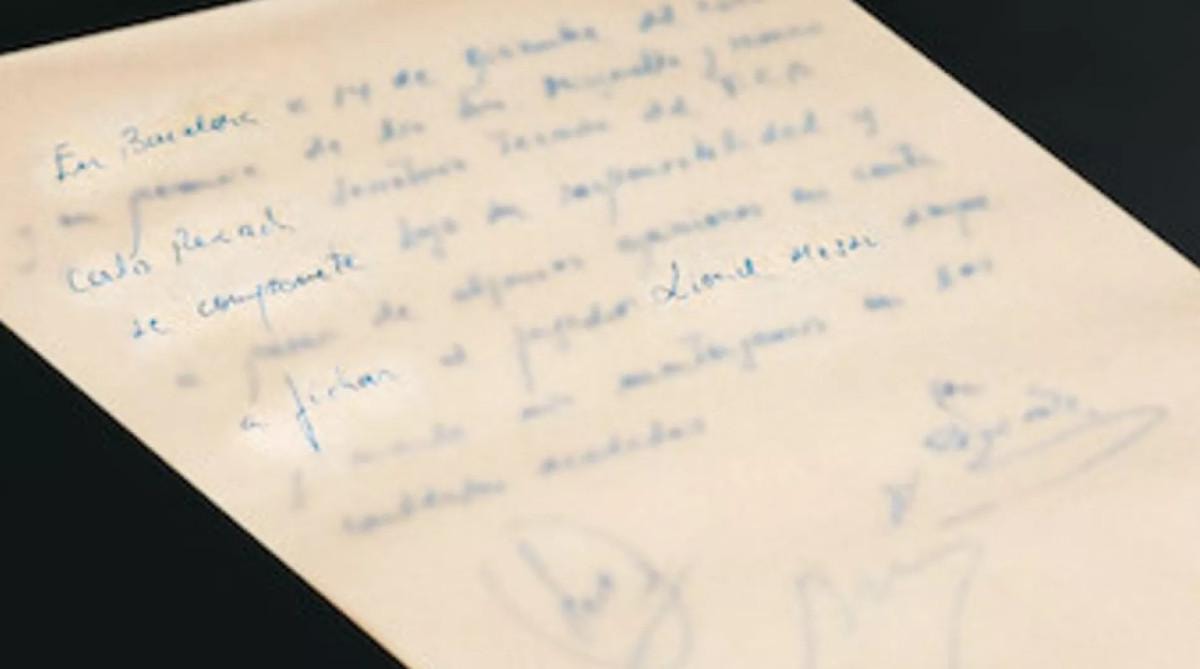 En Barcelona a 14 de diciembre del
en presencia de los Minguella y Horacio
Carlos Rexach Técnico del F.C.B
se compromete bajo su responsabilidad y
a pesar de algunas opiniones en contra
a fichar al jugador Lionel Messi siempre
y cuando nos mantengamos en las
cantidades acordadas